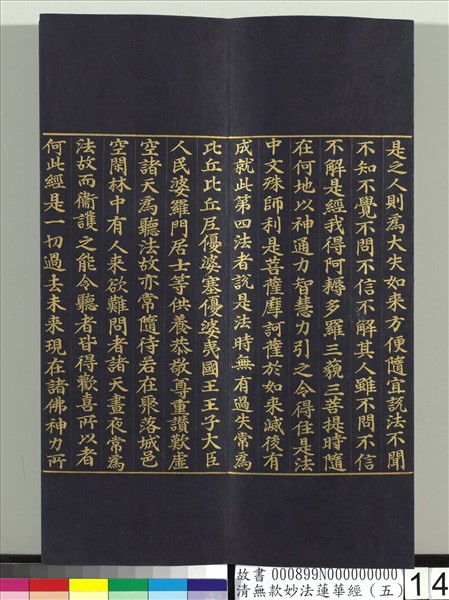 是之人則為大失如來方便隨宜說法不聞
不知不覺不問不信不解其人雖不問不信
不解是經我得阿耨多羅三藐三菩提時隨
在何地以神通力智慧力引之令得住是法
中文殊師利是菩薩摩訶薩於如來滅後有
成就此第四法者說是法時無有過失常為
比丘比丘尼優婆塞優婆夷國王王子大臣
人民婆羅門居士等供養恭敬尊重讚歎虛
空諸天為聽法故亦常隨侍若在聚落城邑
空閑林中有人來欲難問者諸天晝夜常為
法故而衞護之能令聽者皆得歡喜所以者
何此經是一切過去未來現在諸佛神力所
故書 000899N000000000
清無款妙法蓮華經（五）
14